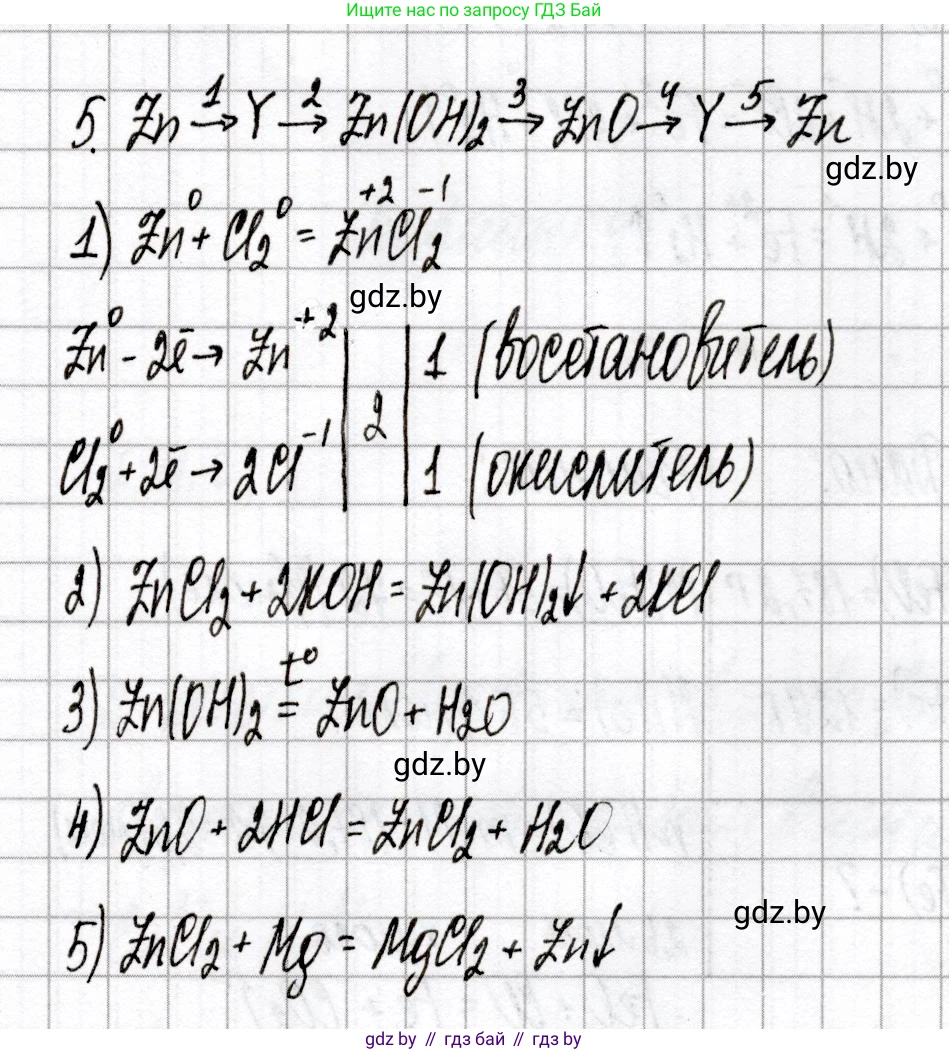 Ищите нас по запросу ГДЗ Бай
5. Zn →¹ Y →² Zn(OH)₂ →³ ZnO →⁴ Y →⁵ Zn
gdz.by
1) Zn⁰ + Cl₂⁰ = Zn⁺²Cl₂⁻¹
gdz.by
Zn⁰ - 2ē → Zn⁺² | | 1 (восстановитель)
Cl₂⁰ + 2ē → 2Cl⁻¹ | 2 | 1 (окислитель)
2) ZnCl₂ + 2KOH = Zn(OH)₂↓ + 2KCl
3) Zn(OH)₂ =t⁰ ZnO + H₂O
gdz.by
4) ZnO + 2HCl = ZnCl₂ + H₂O
gdz.by
5) ZnCl₂ + Mg = MgCl₂ + Zn↓
gdz.by // гдз бай // gdz.by